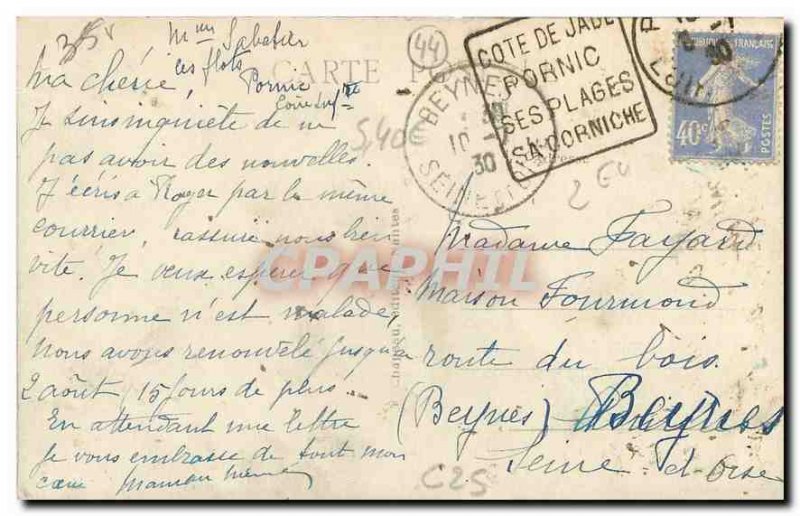 35
Mme Sabatier
les flots
Pornic
Loire Infre
CARTE POSTALE
44
Ma chérie,
Je suis inquiète de ne
pas avoir des nouvelles.
J'écris à Roger par le même
courrier, rassure nous bien
vite. Je veux espérer que
personne n'est malade,
Nous avons renouvelé jusqu'au
2 août 15 jours de plus.
En attendant une lettre
je vous embrasse de tout mon
cœur Maman
5,40
BEYNES
10 -7
30
SEINE-ET-OISE
COTE DE JADE
PORNIC
SES PLAGES
SA CORNICHE
RÉPUBLIQUE FRANÇAISE
40c
POSTES
30
2 Eu
Madame Fayard
Maison Fourmond
route du bois
(Beynes) Beynes
Seine et Oise
C25
Chapeau, édit. Nantes
CPAPHIL